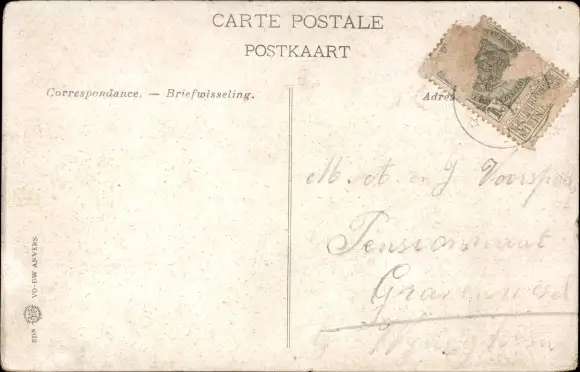 CARTE POSTALE
POSTKAART
Correspondance. — Briefwisseling.
Adres
M. A en J Voorspoe
Pensionnaat
Gravenwezel
EDN VO-DW ANVERS